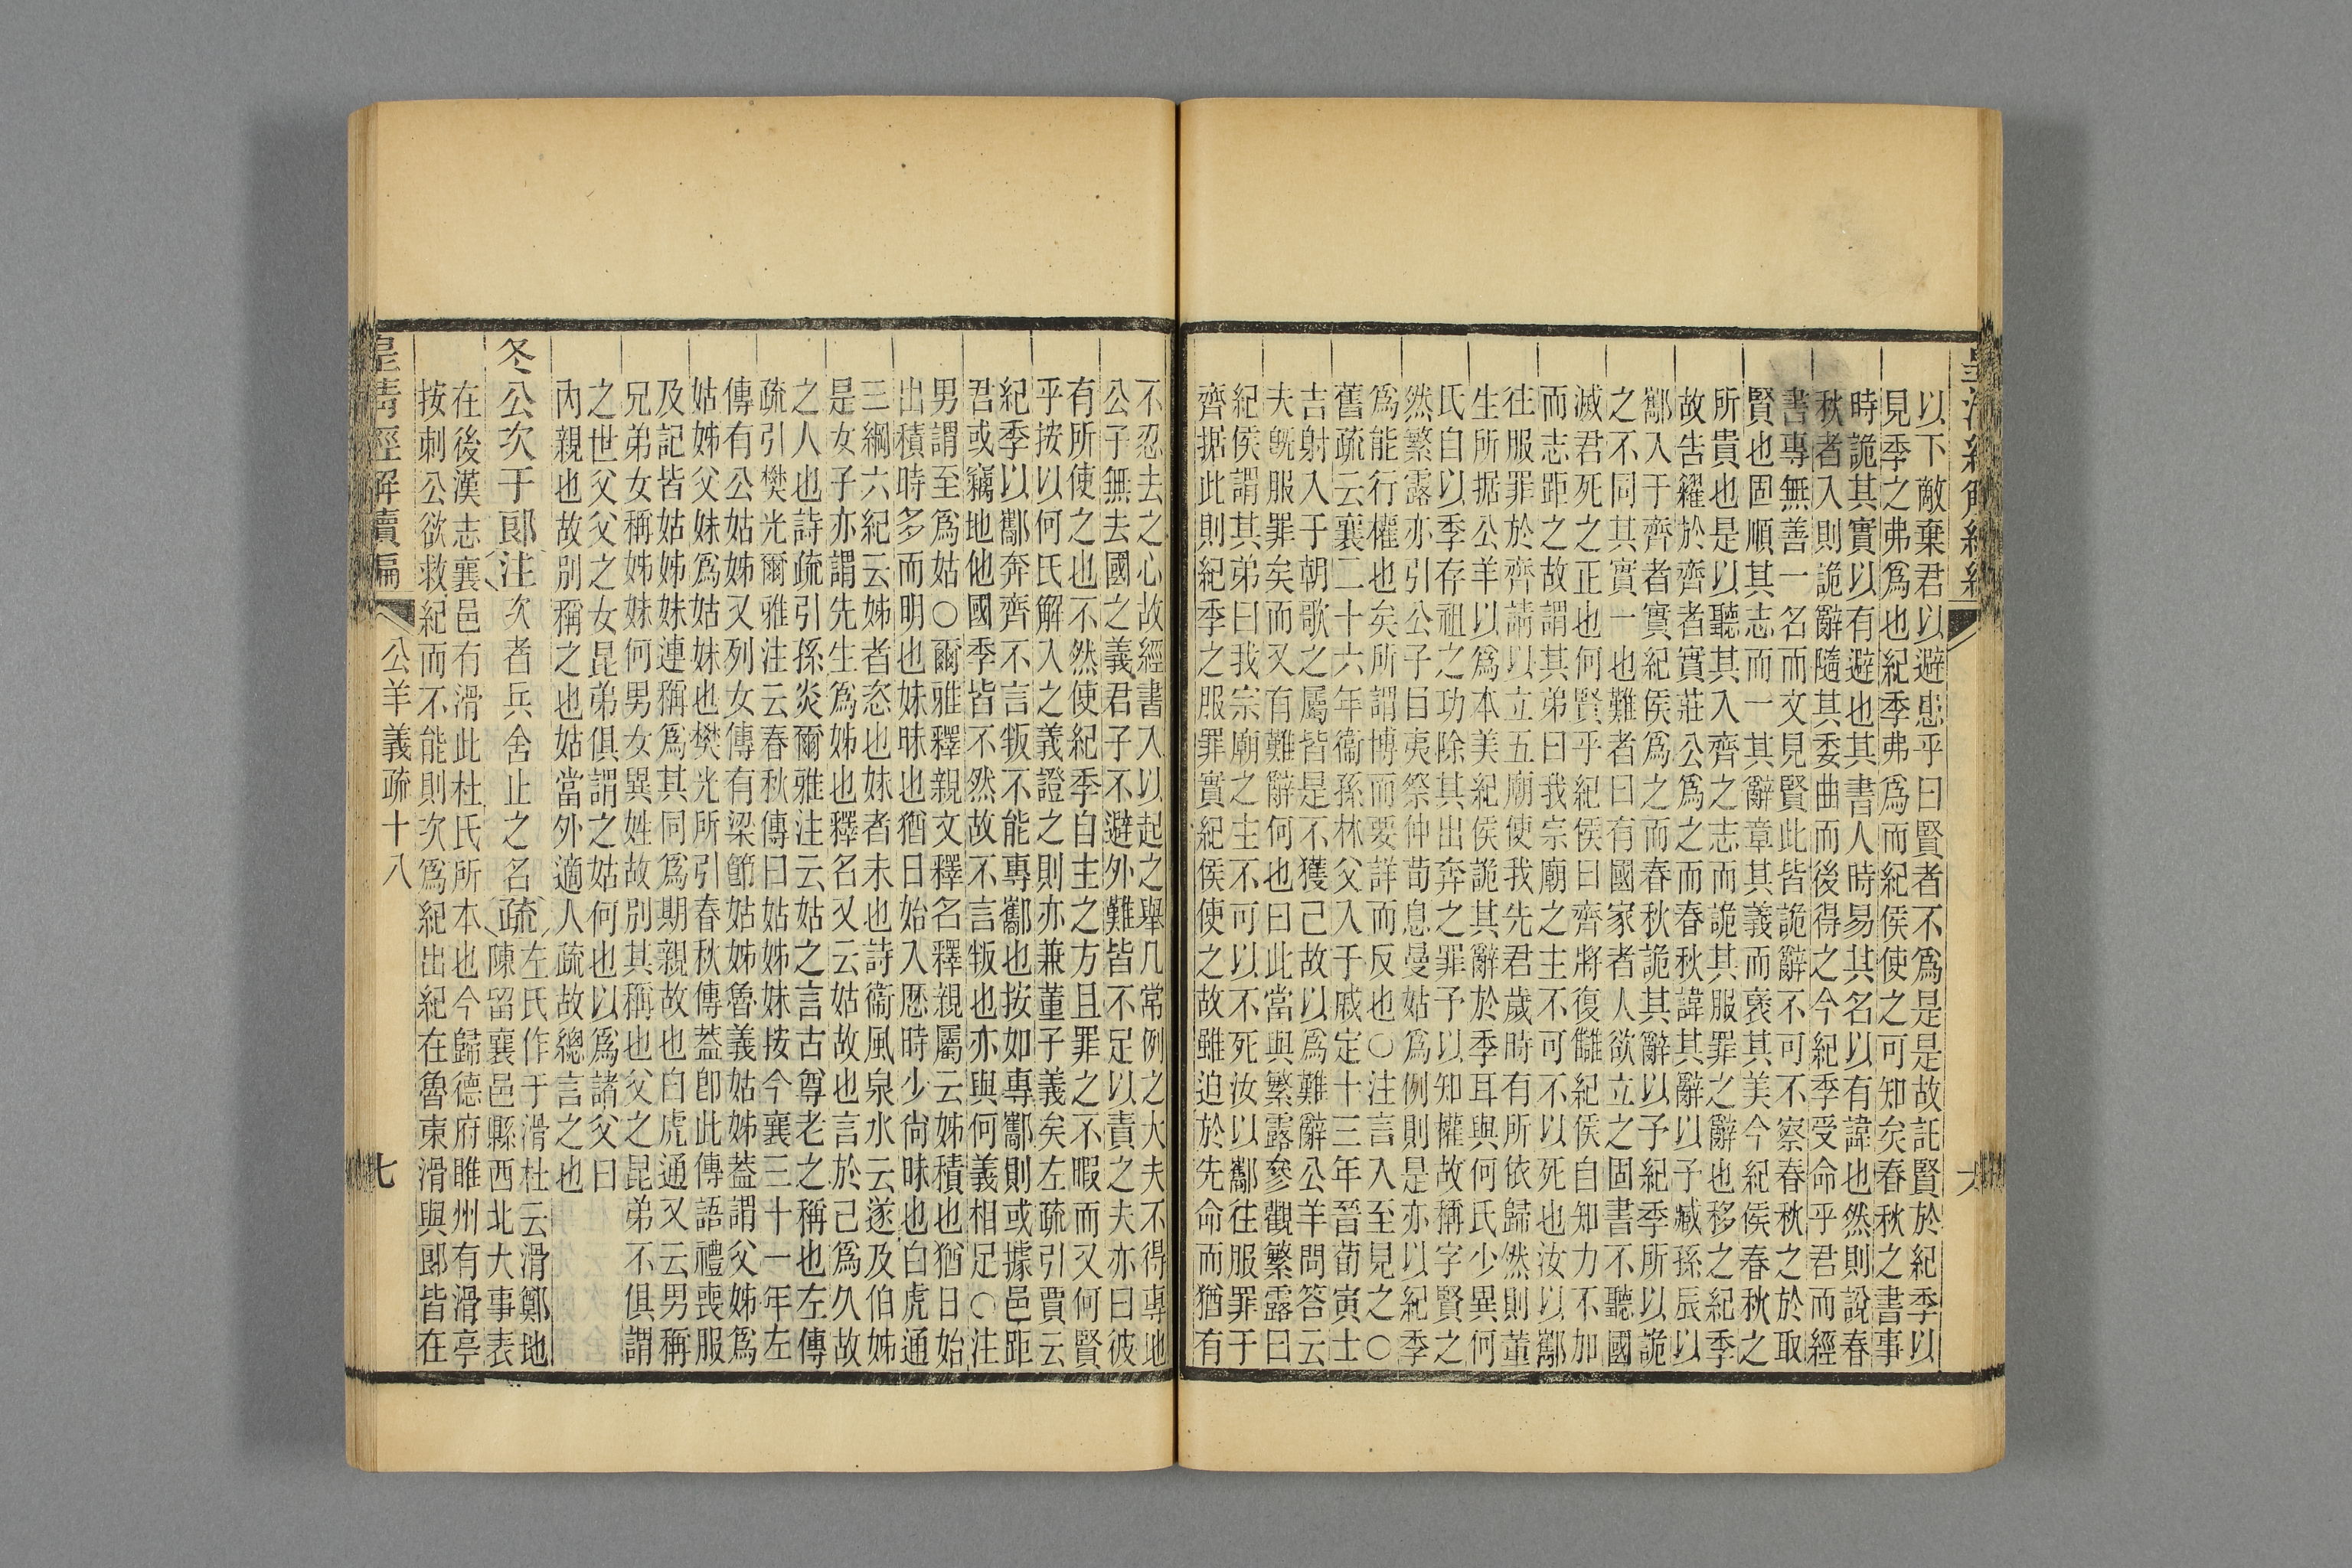 以下敵棄君以避患乎曰賢者不爲是是故託賢於紀季以
見季之弗爲也紀季弗爲而紀侯使之可知矣春秋之書事
時詭其實以有避也其書人時易其名以有諱也然則說春
秋者入則詭辭隨其委曲而後得之今紀季受命乎君而經
書專無善一名而文見賢此皆詭辭不可不察春秋之於取
賢也固順其志而一其辭章其義而褒其美今紀侯春秋之
所貴也是以聽其入齊之志而詭其服罪之辭也移之紀季
故告糴於齊者實莊公爲之而春秋諱其辭以予臧孫辰以
酅入于齊者實紀侯爲之而春秋詭其辭以予紀季所以詭
之不同其實一也難者曰有國家者人欲立之固書不聽國
滅君死之正也何賢乎紀侯曰齊將復讎紀侯自知力不加
而志距之故謂其弟曰我宗廟之主不可不以死也汝以酅
往服罪於齊請以立五廟使我先君歲時有所依歸然則董
生所据公羊以爲本美紀侯詭其辭於季耳與何氏少異何
氏自以季存祖之功除其出奔之罪予以知權故稱字賢之
然繁露亦引公子目夷祭仲荀息曼姑爲例則是亦以紀季
爲能行權也矣所謂博而要詳而反也○注言入至見之○
舊疏云襄二十六年衞孫林父入于戚定十三年晉荀寅士
吉射入于朝歌之屬皆是不獲己故以爲難辭公羊問答云
夫旣服罪矣而又有難辭何也曰此當與繁露參觀繁露曰
紀侯謂其弟曰我宗廟之主不可以不死汝以酅往服罪于
齊据此則紀季之服罪實紀侯使之故雖迫於先命而猶有
不忍去之心故經書入以起之舉凡常例之大夫不得專地
公子無去國之義君子不避外難皆不足以責之夫亦曰彼
有所使之也不然使紀季自主之方且罪之不暇而又何賢
乎按以何氏解入之義證之則亦兼董子義矣左疏引賈云
紀季以酅奔齊不言叛不能專酅也按如專酅則或據邑距
君或竊地他國季皆不然故不言叛也亦與何義相足○注
男謂至爲姑○爾雅釋親文釋名釋親屬云姊積也猶日始
出積時多而明也妹昧也猶日始入厯時少尙昧也白虎通
三綱六紀云姊者恣也妹者未也詩衞風泉水云遂及伯姊
是女子亦謂先生爲姊也釋名又云姑故也言於己爲久故
之人也詩疏引孫炎爾雅注云姑之言古尊老之稱也左傳
疏引樊光爾雅注云春秋傳曰姑姊妹按今襄三十一年左
傳有公姑姊又列女傳有梁節姑姊魯義姑姊蓋謂父姊爲
姑姊父妹爲姑妹也樊光所引春秋傳蓋卽此傳語禮喪服
及記皆姑姊妹連稱爲其同爲期親故也白虎通又云男稱
兄弟女稱姊妹何男女異姓故別其稱也父之昆弟不俱謂
之世父父之女昆弟俱謂之姑何也以爲諸父曰
內親也故別稱之也姑當外適人疏故總言之也
冬公次于郞注次者兵舍止之名疏左氏作于滑杜云滑鄭地
陳留襄邑縣西北大事表
在後漢志襄邑有滑此杜氏所本也今歸德府睢州有滑亭
按刺公欲救紀而不能則次爲紀出紀在魯東滑與郞皆在
皇淸經解續編 公羊義疏十八 七